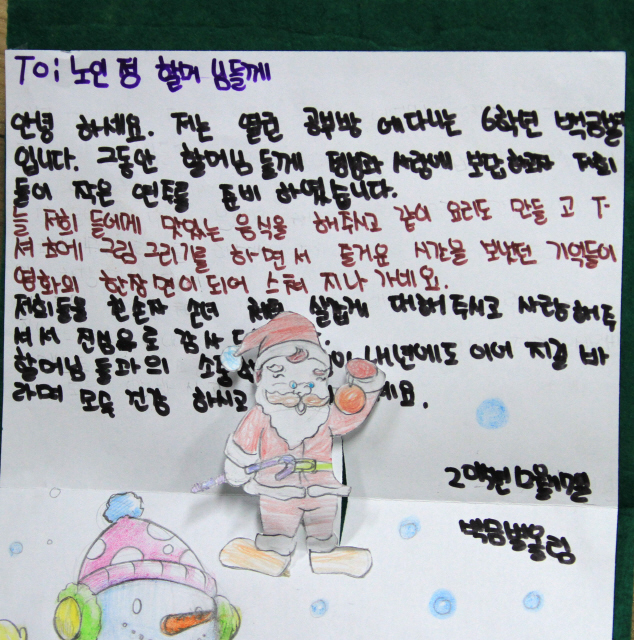 To: 노인정 할머님들께
안녕 하세요. 저는 열린 공부방에 다니는 6학년
입니다. 그동안 할머님들께 사랑에 보답하고자 저희
들이 작은 연주를 준비 하였습니다.
늘 저희 들에게 맛있는 음식을 해주시고 같이 요리도 만들고 T-
셔츠에 그림 그리기를 하면서 즐거운 시간을 보냈던 기억들이
영화의 한장면이 되어 스쳐 지나 가네요.
저희들을 친손자 손녀 살갑게 대해주시고 사랑해주
셔서 진심으로 감사
할머님들과의 내년에도 이어 지길 바
라며 모두 건강 하시고
올림